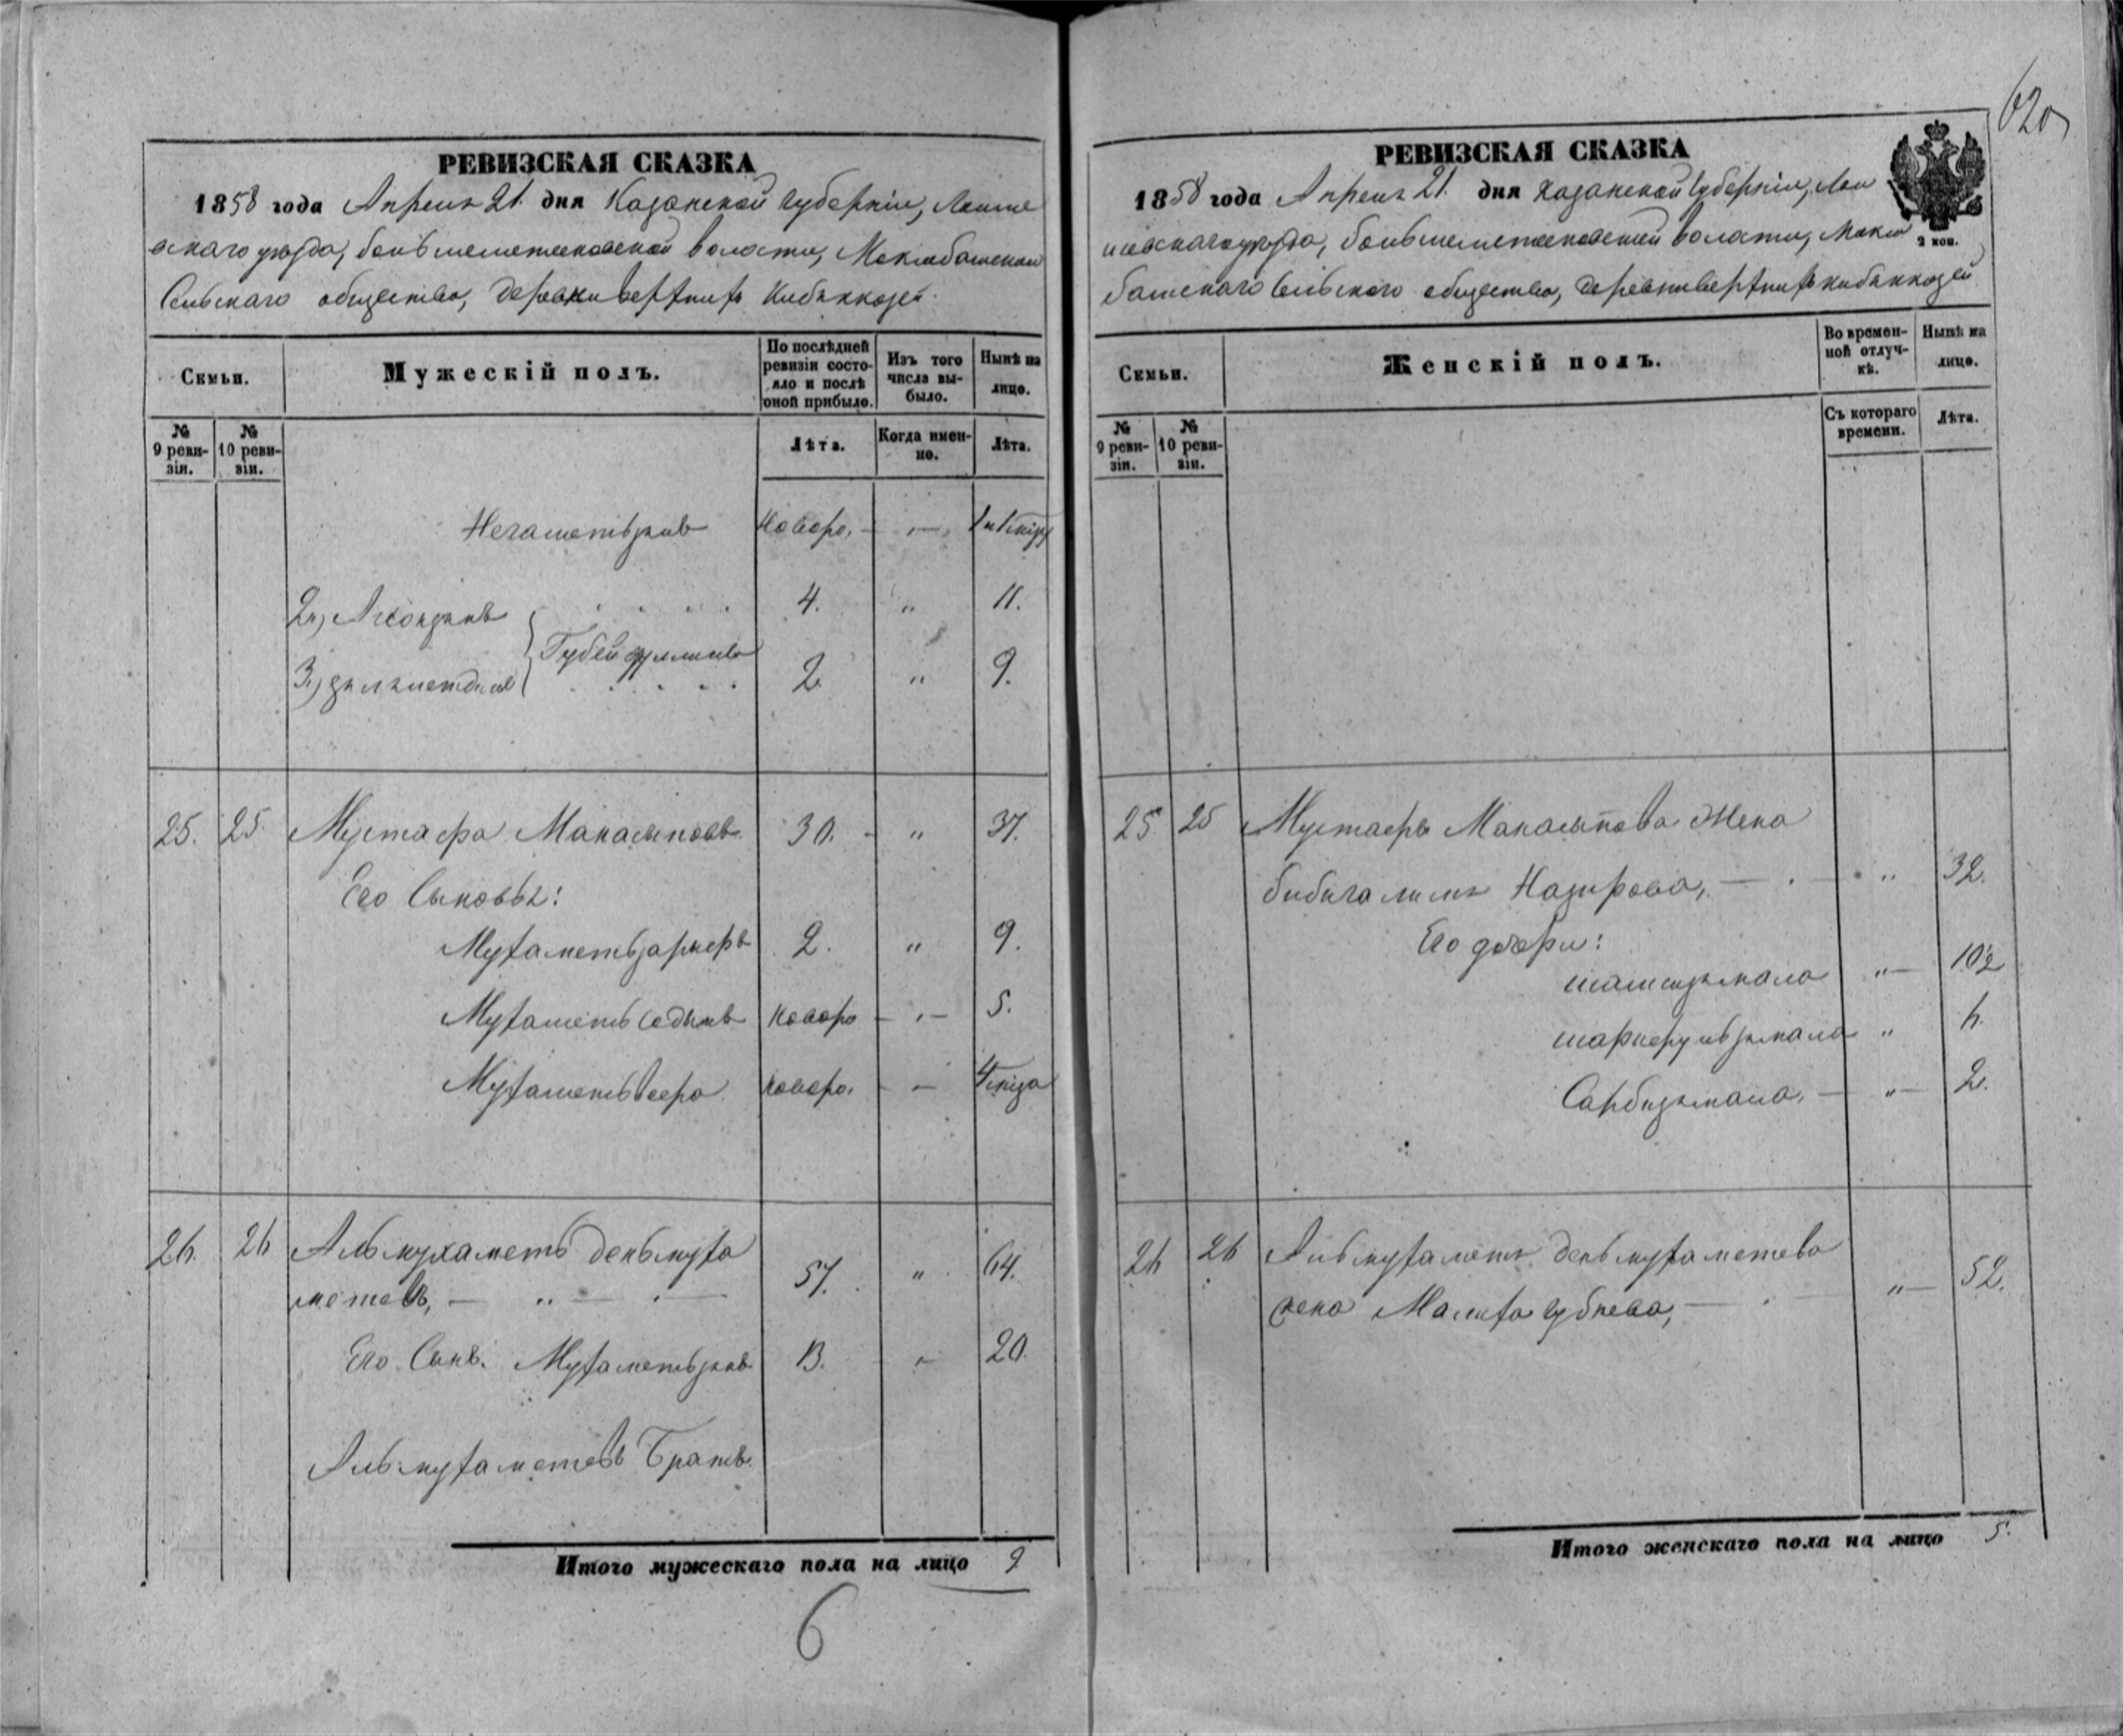 620
РЕВИЗСКАЯ СКАЗКА
1858 года Апреля 21 дня Казанской губернiи, Лаише
скаго уѣзда, большеметесковской волости,
Сельскаго общества, деревни верхнихъ Кибякозей.
Семьи.
Мужескiй полъ.
По послѣдней ревизiи состояло и послѣ оной прибыло.
Изъ того числа выбыло.
Нынѣ на лицо.
№ 9 ревизiи.
№ 10 ревизiи.
Лѣта.
Когда именно.
Лѣта.
Негаметьзянъ Новоро. — „ —
2.) Ахонзянъ 4. „ 11.
Губейдуллины
3.) 2 „ 9.
25. 25 Мустафа Макасыповъ 30. „ 37.
Его Сыновья:
Мухаметьзарыфъ 2. „ 9.
Мухаметь садыкъ новоро — „ — 5.
Мухаметьвафа новоро. — —
26. 26 Альмухаметь деньмуха
метевъ, — „ — 57. „ 64.
Его Сынъ. Мухаметьзянъ 13. „ 20.
Альмухаметевъ Братъ.
Итого мужескаго пола на лицо 9
6
РЕВИЗСКАЯ СКАЗКА
1858 года Апреля 21. дня Казанской губернiи, Лаи
шевскаго уѣзда, большеметесковской волости,
сельскаго общества, деревни верхнихъ кибякозей
2 коп.
Семьи.
Женскiй полъ.
Во временной отлучкѣ.
Нынѣ на лицо.
№ 9 ревизiи.
№ 10 ревизiи.
Съ котораго времени.
Лѣта.
25 25 Мустафы Макасыпова Жена
бибигалима Назирова, — „ 32.
Его дочери:
„ —
„ 6.
Сарбизямала, — „ — 2.
26 26 Альмухаметя деньмухаметева
жена Махубнева, — „ — 52.
Итого женскаго пола на лицо 5.